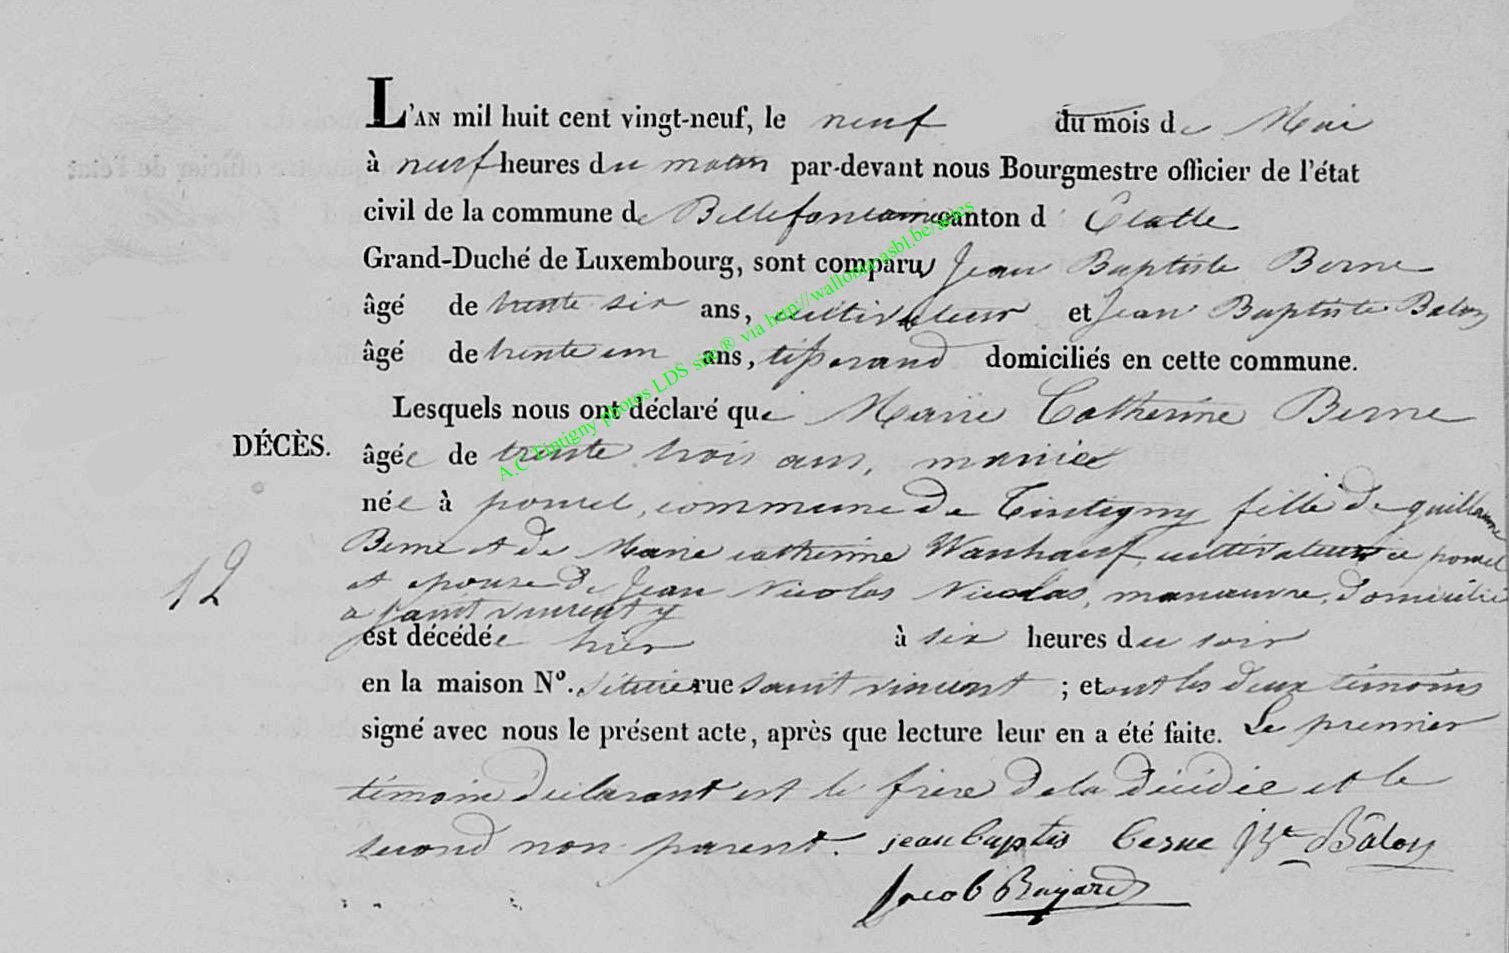 L'AN mil huit cent vingt-neuf, le neuf du mois de Mai
à neuf heures du matin par-devant nous Bourgmestre officier de l'état
civil de la commune de Bellefontaine canton d' Etalle
Grand-Duché de Luxembourg, sont comparus Jean Baptiste Berne
âgé de trente six ans, cultivateur et Jean Baptiste Balon
âgé de trente un ans, tisserand domiciliés en cette commune.
Lesquels nous ont déclaré que Marie Catherine Berne
DÉCÈS.
âgée de trente trois ans, mariée
née à poncel, commune de Tintigny fille de guillaume
12
Berne et de Marie catherine cultivateurs poncel
et epouse de Jean Nicolas Nicolas, manœuvre, domicilié
a saint vincent y
est décédée hier à six heures du soir
en la maison Nº. située rue saint vincent ; et ont les deux témoins
signé avec nous le présent acte, après que lecture leur en a été faite. Le premier
témoin déclarant est le frère de la décédée et le
second non parent. jean baptis berne JBte Bâlon
Jacob Bayard
A.C Tintigny photos LDS site ® via http://wallonia-asbl.be/actes